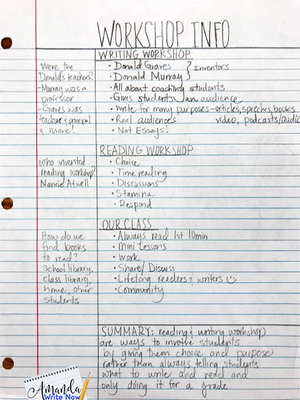 WORKSHOP INFO
WRITING WORKSHOP
Were the
Donalds teachers?
-Murray was a
professor
-Graves was
teacher & principal
& more!
• Donald Graves } Inventors
• Donald Murray
• All about coaching students
• Gives students an audience
• Write for many purposes-articles, speeches, books,
• Real audiences video, podcasts/audio
• Not Essays!
READING WORKSHOP
who invented
reading workshop?
Nancie Atwell
• Choice
• Time reading
• Discussions
• Stamina
• Respond
OUR CLASS
How do we
find books
to read?
School library,
class library,
home, other
students
• Always read 1st 10min
• Mini lessons
• Work
• Share/Discuss
• Lifelong readers & writers
• Community
SUMMARY: reading & writing workshop
are ways to involve students
by giving them choice and purpose
rather than always telling students
what to write and read and
only doing it for a grade
Amanda
Write Now